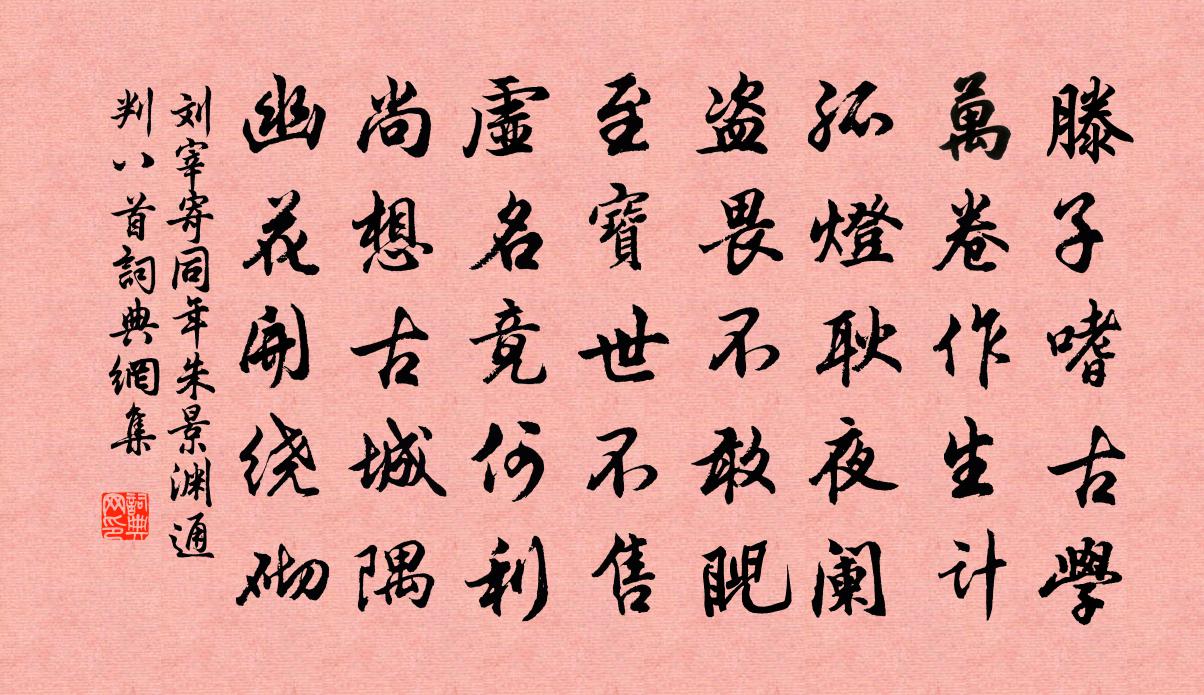 滕子嗜古學
萬卷作生计
孤燈耿夜阑
盗畏不敢睨
至寶世不售
虚名竟何利
尚想古城隅
幽花開绕砌
刘宰寄同年朱景渊通
判八首詞典網集
詞典网印